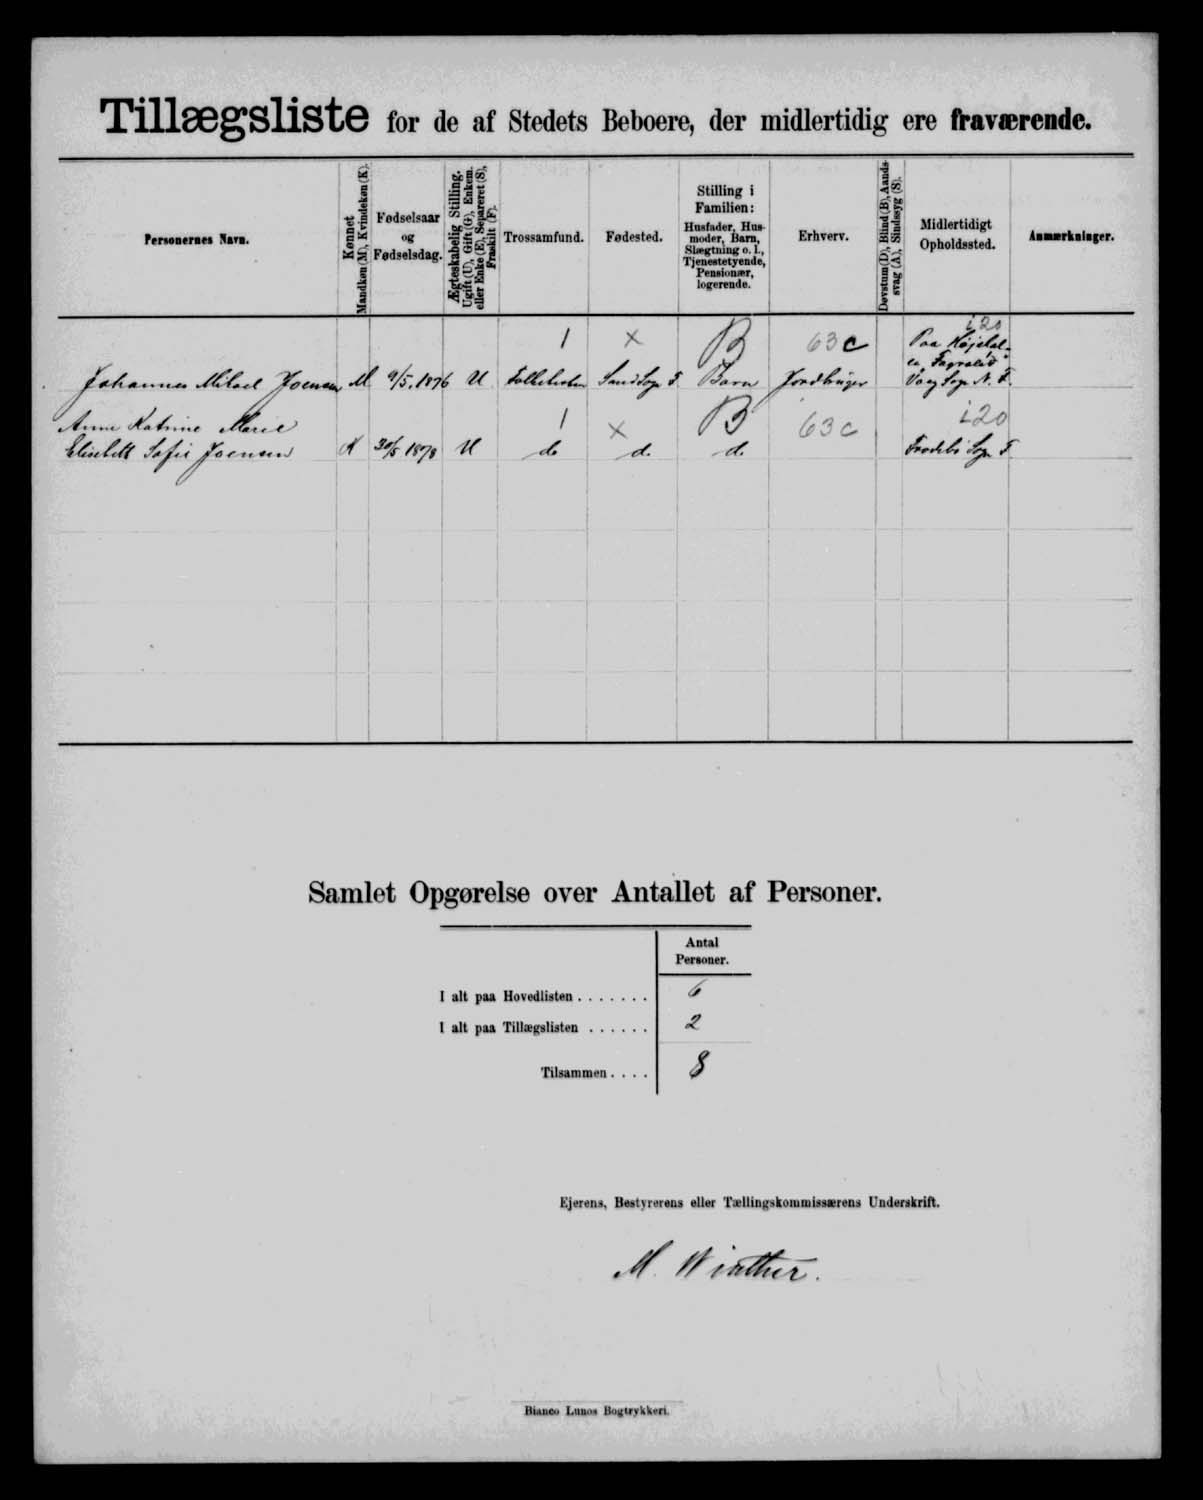 Tillægsliste for de af Stedets Beboere, der midlertidig ere fraværende.
Personernes Navn.
Kønnet
Mandkøn (M), Kvindekøn (K).
Fødselsaar
og
Fødselsdag.
Ægteskabelig Stilling.
Ugift (U), Gift (G), Enkem.
eller Enke (E), Separeret (S),
Fraskilt (F).
Trossamfund.
Fødested.
Stilling i
Familien:
Husfader, Hus-
moder, Barn,
Slægtning o. l.,
Tjenestetyende,
Pensionær,
logerende.
Erhverv.
Døvstum (D), Blind (B), Aands-
svag (A), Sindssyg (S).
Midlertidigt
Opholdssted.
Anmærkninger.
1 × B 63 c i 20
Paa
Johannes Mikael Joensen M 9/5. 1876 U Folkekirken Sand Sogn F. Barn Jordbruger Vaag Sogn N. F.
Anne Katrine Marie 1 × B 63 c i 20
Elisebett Sofie Joensen K 30/5 1878 U do d. d. Frodebø Sogn F.
Samlet Opgørelse over Antallet af Personer.
Antal
Personer.
I alt paa Hovedlisten . . . . . . . 6
I alt paa Tillægslisten . . . . . . 2
Tilsammen . . . . 8
Ejerens, Bestyrerens eller Tællingskommissærens Underskrift.
M. Winther.
Bianco Lunos Bogtrykkeri.